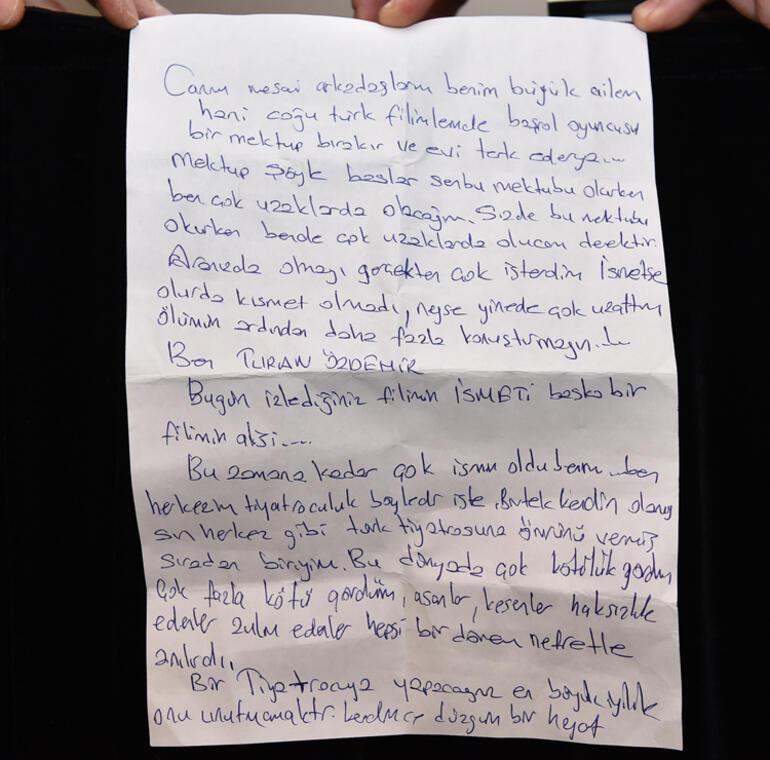 Canım mesai arkadaşlarım benim büyük ailem
hani çoğu türk filimlemde başrol oyuncusu
bir mektup bırakır ve evi terk ederya...
Mektup şöyle başlar sen bu mektubu okurken
ben çok uzaklarda olacağım. Sizde bu mektubu
okurken bende çok uzaklarda olucam
Aranızda olmayı gerçekten çok isterdim İsmetse
olurda kısmet olmadı, neyse yinede çok uzattım
ölümün ardından daha fazla konuşturmayın...
Ben TURAN ÖZDEMİR
Bugün izlediğiniz filimin İSMETİ başka bir
filimin
Bu zamana kadar çok ismim oldu benim ... ben
herkezim tiyatroculuk böyledir işte. Bitek kendin
sın herkez gibi türk tiyatrosuna ömrünü vermiş
sıradan biriyim. Bu dünyada çok kötülük gördüm
Çok fazla kötü gördüm, asanlar, kesenler haksızlık
edenler zulm edenler hepsi bir dönem nefretle
anılırdı,
Bir Tiyatrocuya yapacağınız en büyük iyilik
onu unutmamaktır. kendinize düzgün bir hayat